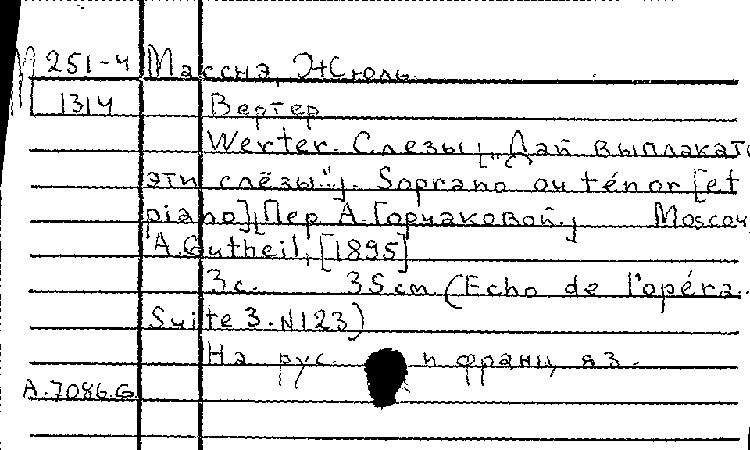 М 251-4 Массна, Жюль
1314 Вертер
Werter. Слезы [„Дай выплакать
эти слёзы"]. Soprano ou ténor [et
piano] [Пер А. Горчаковой.] Moscou,
A. Gutheil, [1895]
3с. 35cm (Echo de l'opéra.
Suite 3. N123)
На рус. и франц. яз.
A.7086.G